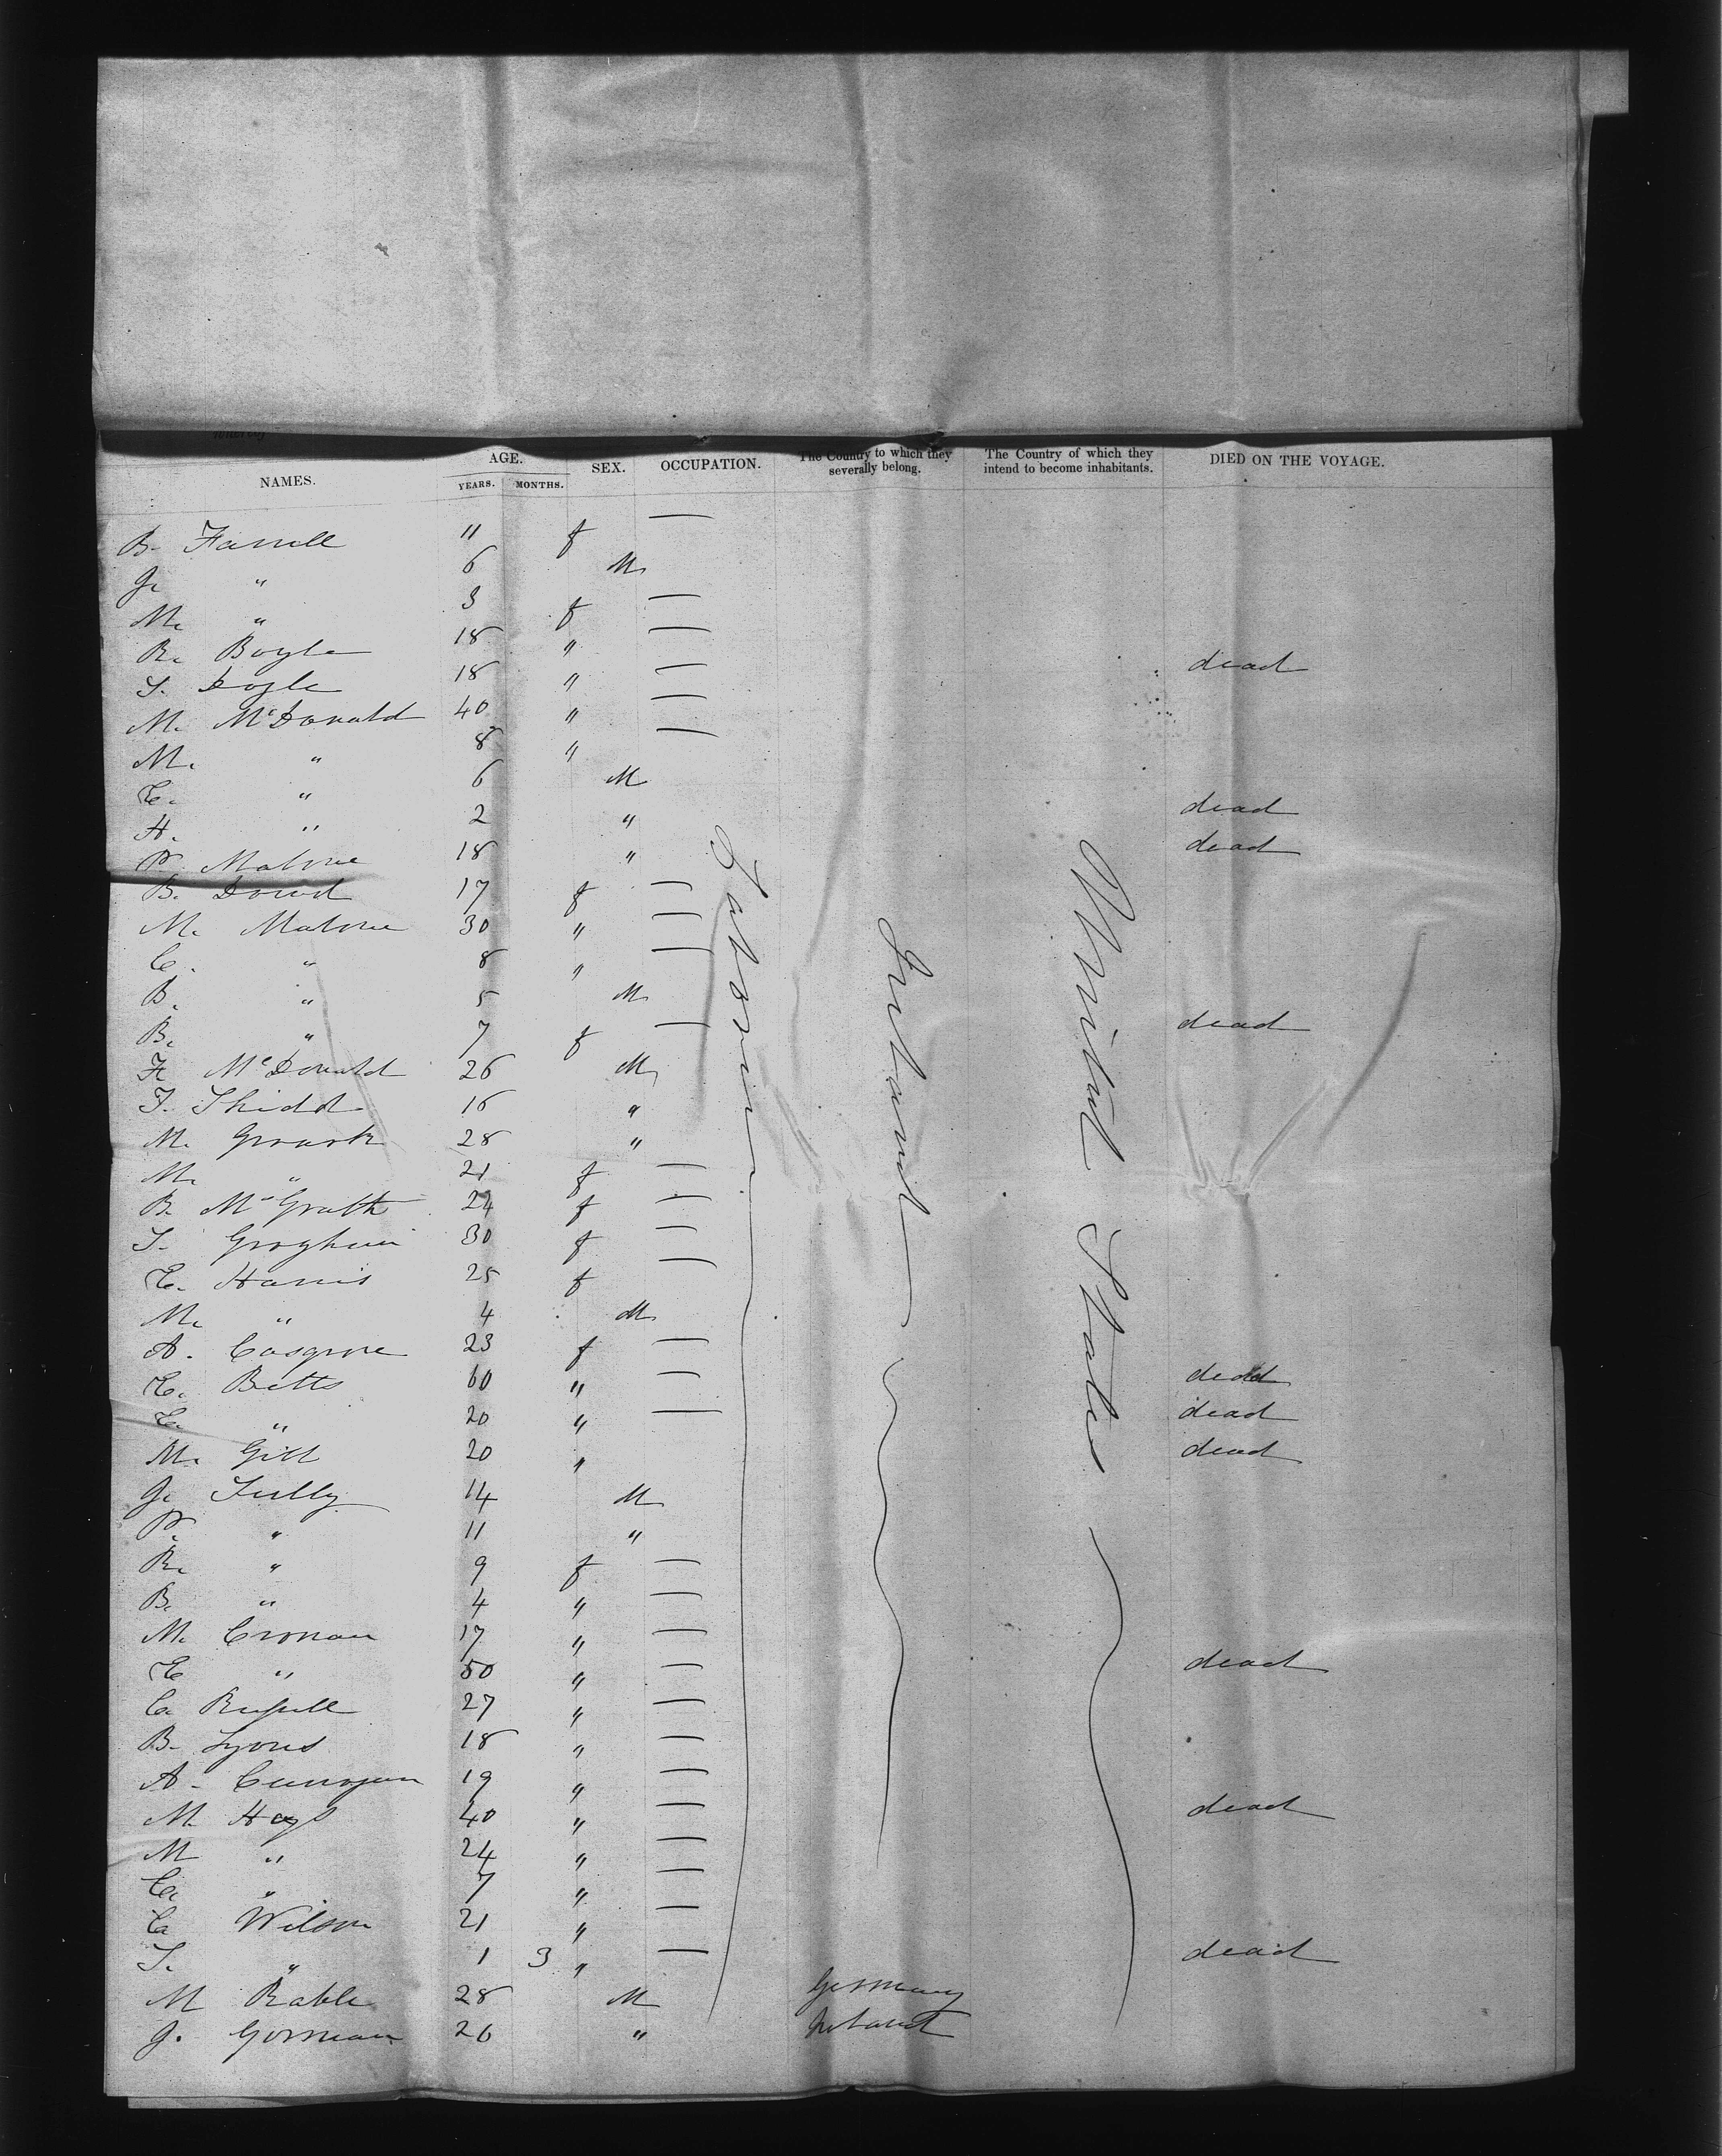 NAMES. AGE. YEARS. MONTHS. SEX. OCCUPATION. The Country to which they severally belong. The Country of which they intend to become inhabitants. DIED ON THE VOYAGE.
B. Farrell 11 f —
J. " 6 M
M. " 3 f —
R. Boyle 18 " —
S. Doyle 18 " — dead
M. McDonald 40 " —
M. " 8 " —
E. " 6 M
H. " 2 " dead
P. Malone 18 " dead
B. Dowd 17 f —
M. Malone 30 " —
C. " 8 " —
B. " 5 M
B. " 7 f — dead
F. McDonald 26 M
T. 16 "
M. Groark 28 "
M. " 21 f —
B. McGrath 24 f —
S. 30 f —
E. Harris 25 f —
M. " 4 M
A. Cosgrove 23 f —
E. Betts 60 " — dead
E. " 20 " — dead
M. Gill 20 " dead
J. Tully 14 M
P. " 11 "
R. " 9 f —
B. " 4 " —
M. Cronan 17 " —
E " 50 " — dead
C. Russell 27 " —
B. Lyons 18 " —
A. 19 " —
M. Hays 40 " — dead
M " 24 " —
C. " 7 " —
C. Wilson 21 " —
S. " 1 3 " — dead
M Rable 28 M Germany
J. Gorman 26 " Ireland
Ireland
United States